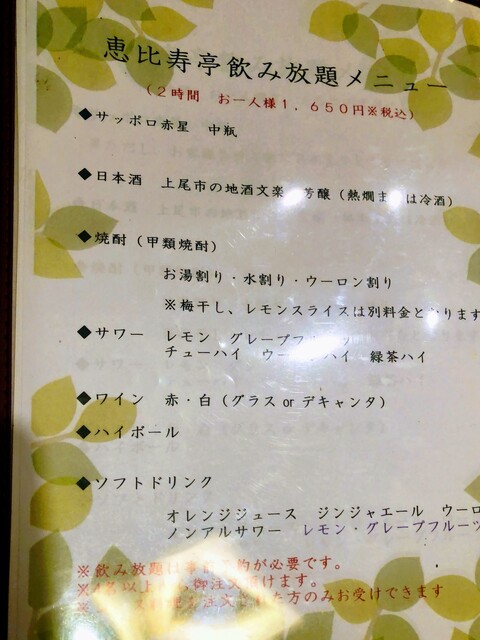 恵比寿亭飲み放題メニュー
(2時間 お一人様1,650円※税込)
◆サッポロ赤星 中瓶
◆日本酒 上尾市の地酒文楽 芳醸(熱燗または冷酒)
◆焼酎(甲類焼酎)
お湯割り・水割り・ウーロン割り
※梅干し、レモンスライスは別料金となります
◆サワー レモン グレープフルーツ
チューハイ ウーロンハイ 緑茶ハイ
◆ワイン 赤・白(グラス or デキャンタ)
◆ハイボール
◆ソフトドリンク
オレンジジュース ジンジャエール ウーロ
ノンアルサワー レモン・グレープフルーツ
※飲み放題は事前予約が必要です。
※4名以上から御注文頂けます。
※ を注文された方のみお受けできます